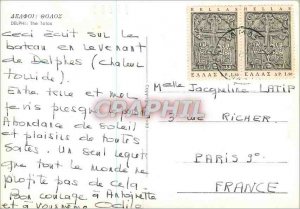 ΔΕΛΦΟΙ: ΘΟΛΟΣ
DELPHI: The Tolos
Ceci écrit sur le
bateau en revenant
de Delphes (Chaleur
torride).
Entre terre et mer
je vis presque
Abondance de soleil
et plaisirs de toutes
sortes. Un seul regret
que tout le monde ne
profite pas de cela.
Bon courage à Antoinette
et à vous même Odile
HELLAS
HELLAS
ΕΛΛΑΣ
ΕΛΛΑΣ
Melle Jacqueline
RUE RICHER.
PARIS 9e
FRANCE